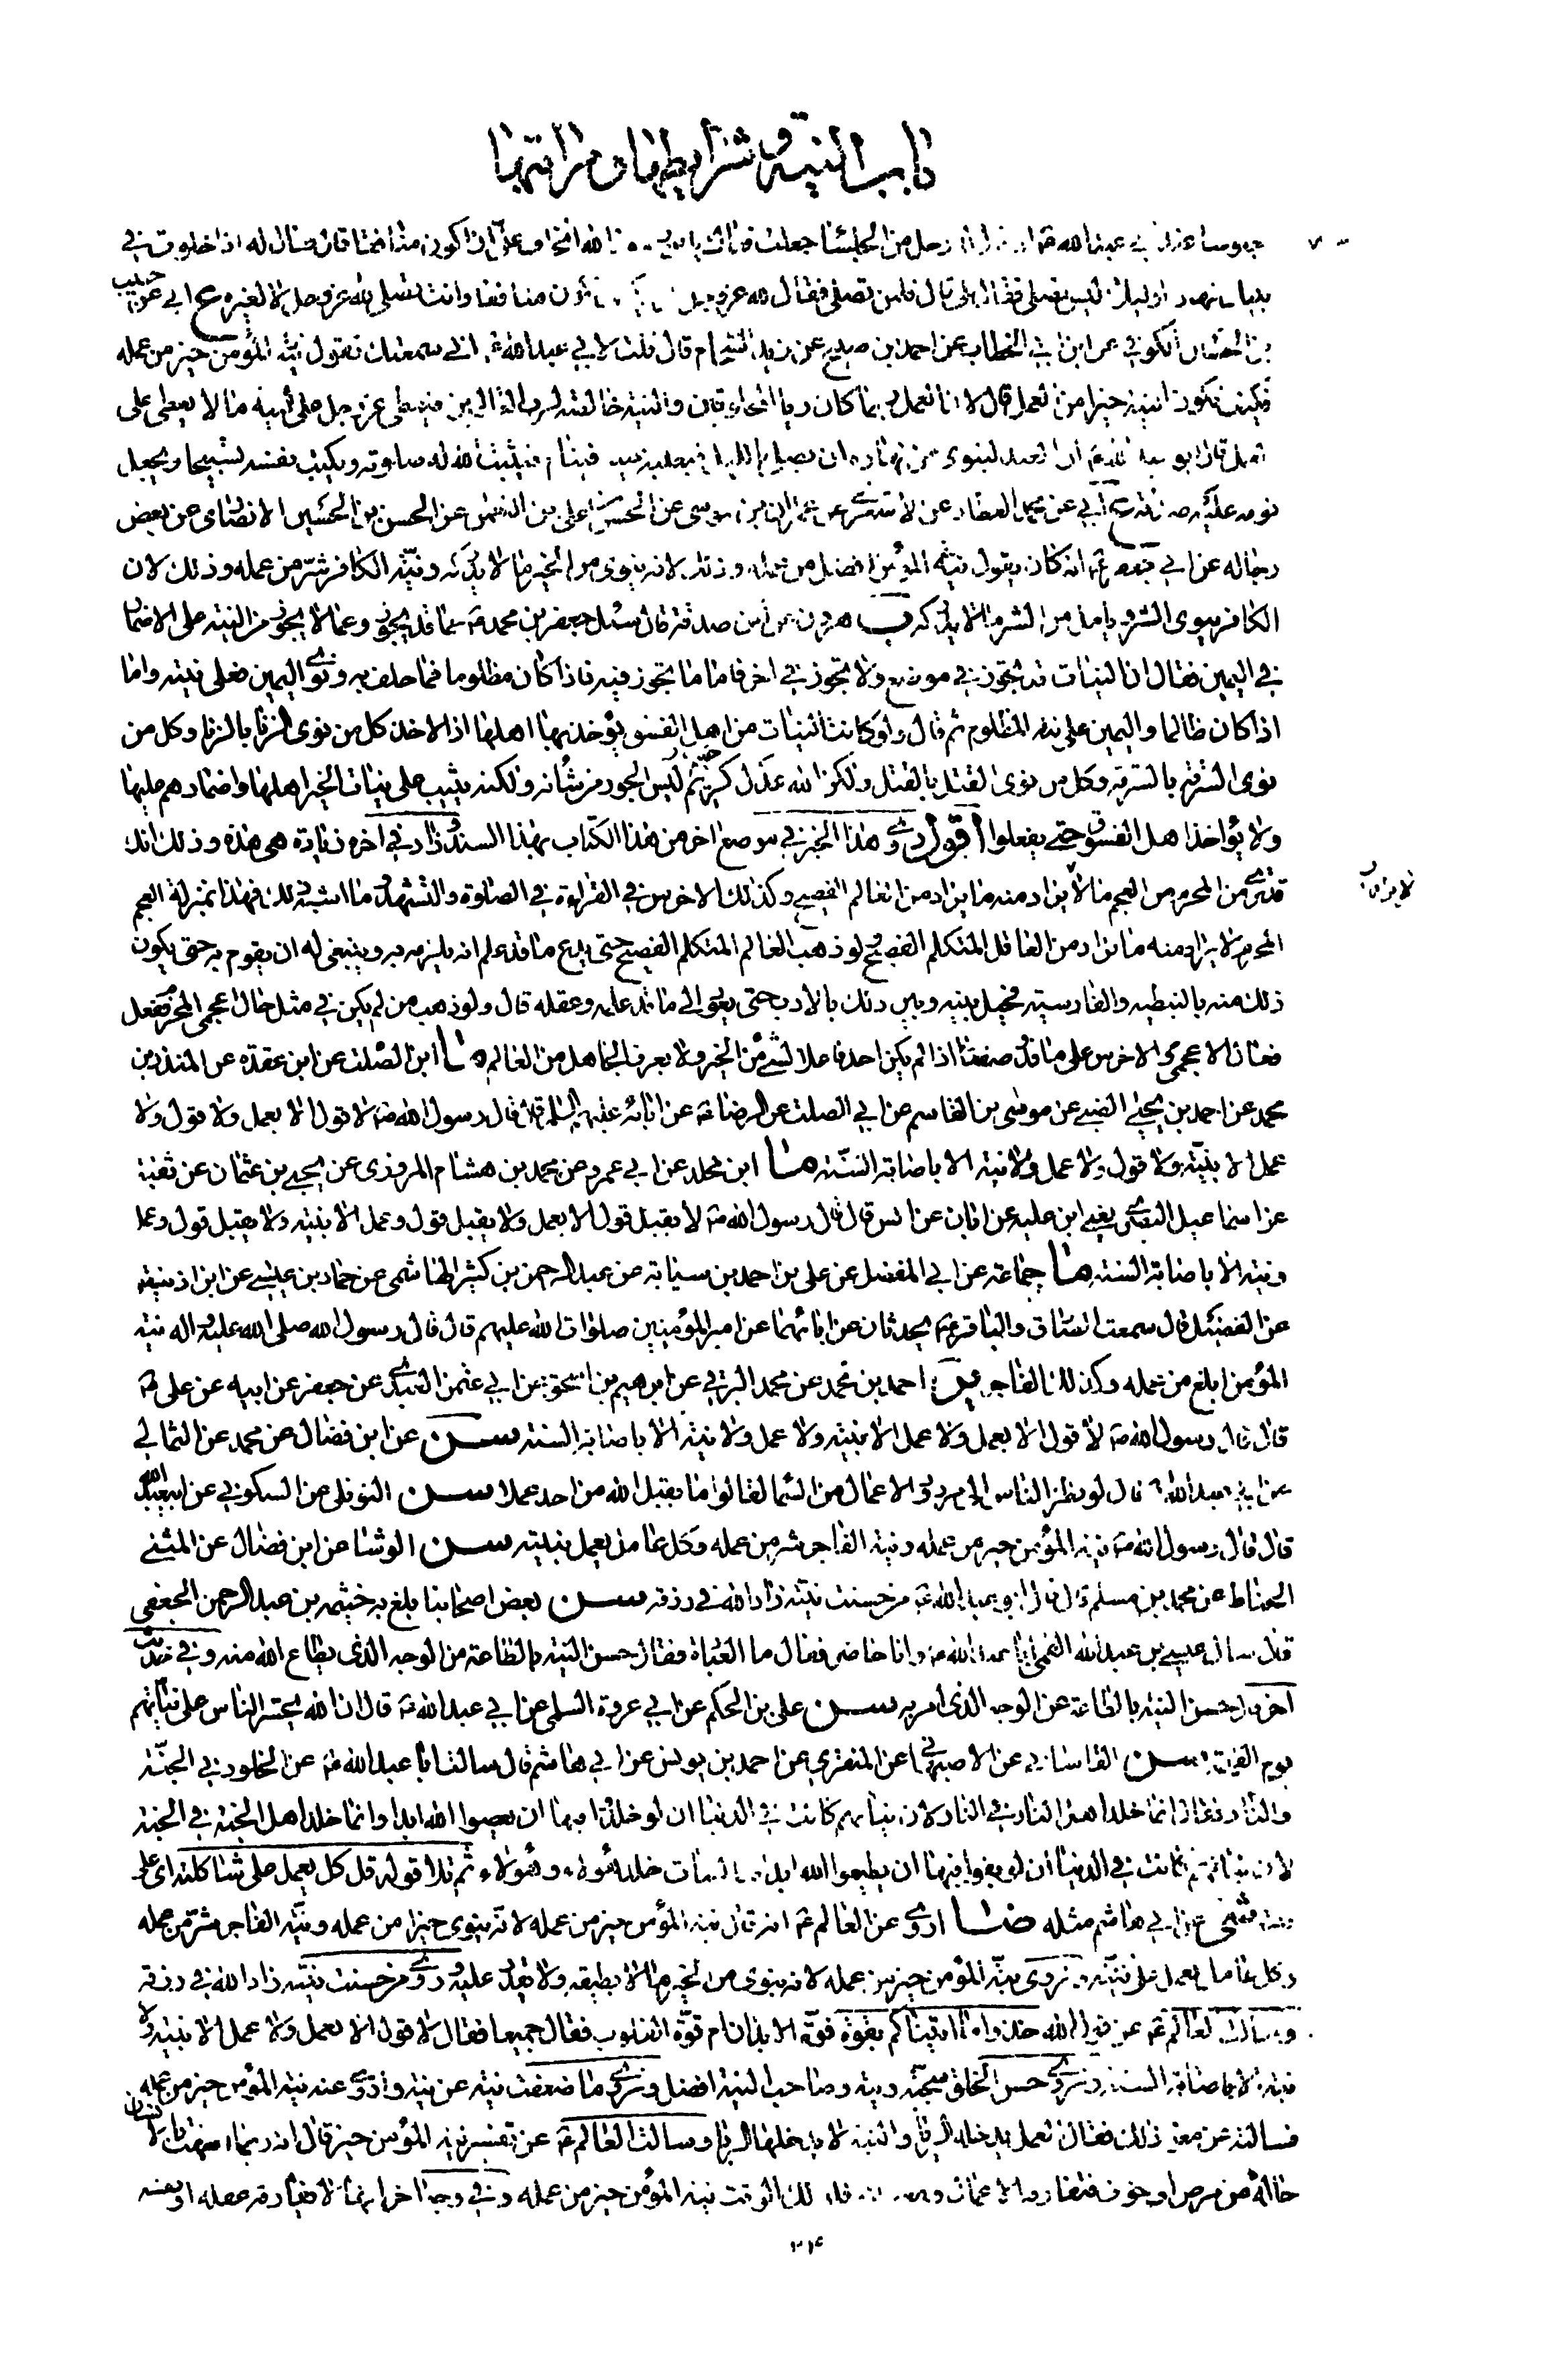 باب النية و شرايطها و مراتبها
عبد الله رجل من الجلساء جعلت فداك يا بن رسول الله اخاف علي ان اكون منافقا قال فقال له اذا خلوت في
بيتك نهارا او ليلا ليس تصلي فقال بلى قال فلمن تصلي فقال لله عز وجل قال فكيف تكون منافقا وانت تصلي لله عز وجل لا لغيره ع ابي عن حبيب
بن الحسين الكوفي عن ابن ابي الخطاب عن احمد بن صبيح عن زيد الشحام قال قلت لابي عبد الله ع اني سمعتك تقول نية المؤمن خير من عمله
فكيف تكون النية خيرا من العمل قال لان العمل ربما كان رياء المخلوقين والنية خالصة لرب العالمين فيعطي عز وجل على النية ما لا يعطي على
العمل قال ابو عبد الله ع ان العبد لينوي من نهاره ان يصلي بالليل فتغلبه عينه فينام فيثبت الله له صلوته ويكتب نفسه تسبيحا ويجعل
نومه عليه صدقة ع ابي عن محمد العطار عن الاشعري عن عمران بن موسى عن الحسن بن علي بن النعمان عن الحسن بن الحسين الانصاري عن بعض
رجاله عن ابي جعفر ع انه كان يقول نية المؤمن افضل من عمله وذلك لانه ينوي من الخير ما لا يدركه ونية الكافر شر من عمله وذلك لان
الكافر ينوي الشر ويامل من الشر ما لا يدركه ب هرون عن ابن صدقة قال سئل جعفر بن محمد ع عما قد يجوز وعما لا يجوز من النية على الاضمار
في اليمين فقال ان النيات قد تجوز في موضع ولا تجوز في اخر فاما ما تجوز فيه فاذا كان مظلوما فما حلف به ونوى اليمين فعلى نيته واما
اذا كان ظالما واليمين على نية المظلوم ثم قال ولو كانت النيات من اهل الفسق يؤخذ بها اهلها اذا لاخذ كل من نوى الزنا بالزنا وكل من
نوى السرقة بالسرقة وكل من نوى القتل بالقتل ولكن الله عدل كريم حكيم ليس الجور من شانه ولكنه يثيب على نيات الخير اهلها واضمارهم عليها
ولا يؤاخذ اهل الفسوق حتى يفعلوا اقول روى هذا الخبر في موضع اخر من هذا الكتاب بهذا السند وزاد في اخره زيادة هي هذه وذلك انك
قد ترى من المحرم من العجم ما لا يراد منه ما يراد من العالم الفصيح وكذلك الاخرس في القراءة في الصلوة والتشهد وما اشبه ذلك فهذا بمنزلة العجم
المحرم لا يراد منه ما يراد من العاقل المتكلم الفصيح ولو ذهب العالم المتكلم الفصيح حتى يدع ما قد علم انه يلزمه به وينبغي له ان يقوم به حتى يكون
ذلك منه بالنبطية والفارسية فحيل بينه وبين ذلك بالادب حتى يعود الى ما قد علمه وعقله قال ولو ذهب من لم يكن في مثل حال اعجمي المحرم ففعل
فعال الاعجمي والاخرس على ما قد وصفنا اذا لم يكن احد فاعلا لشئ من الخير ولا يعرف الجاهل من العالم ما ابن الصلت عن ابن عقدة عن المنذر بن
محمد عن احمد بن يحيى الضبي عن موسى بن القاسم عن ابي الصلت عن الرضا ع عن ابائه عليهم السلام قال قال رسول الله ص لا قول الا بعمل ولا قول ولا
عمل الا بنية ولا قول ولا عمل ولا نية الا باصابة السنة ما ابن مخلد عن ابي عمرو عن محمد بن هشام المروزي عن يحيى بن عثمان عن بقية
عن اسماعيل البصري يعني ابن علية عن ابان عن انس قال قال رسول الله ص لا يقبل قول الا بعمل ولا يقبل قول وعمل الا بنية ولا يقبل قول وعمل
ونية الا باصابة السنة ما جماعة عن ابي المفضل عن علي بن احمد بن سيابة عن عبد الرحمن بن كثير الهاشمي عن حماد بن عيسى عن ابن اذينة
عن الفضيل قال سمعت الصادق والباقر ع يحدثان عن ابائهما عن امير المؤمنين صلوات الله عليهم قال قال رسول الله صلى الله عليه واله نية
المؤمن ابلغ من عمله وكذلك الفاجر ير احمد بن محمد عن محمد البرقي عن ابرهيم بن اسحق عن ابي عثمن العبدي عن جعفر عن ابيه عن علي ع
قال قال رسول الله ص لا قول الا بعمل ولا عمل الا بنية ولا عمل ولا نية الا باصابة السنة سن عن ابن فضال عن محمد عن الثمالي
عن ابي عبد الله ع قال لو نظر الناس الى مردود الاعمال من السماء لقالوا ما يقبل الله من احد عملا سن النوفلي عن السكوني عن ابي عبد الله
قال قال رسول الله ص نية المؤمن خير من عمله ونية الفاجر شر من عمله وكل عامل يعمل بنيته سن الوشا عن ابن فضال عن المثنى
الحناط عن محمد بن مسلم قال قال ابو عبد الله ع من حسنت نيته زاد الله في رزقه سن بعض اصحابنا بلغ به خيثمة بن عبد الرحمن الجعفي
قال سال عيسى بن عبد الله القمي ابا عبد الله ع وانا حاضر فقال ما العبادة فقال حسن النية بالطاعة من الوجه الذي يطاع الله منه وفي حديث
اخر قال حسن النية بالطاعة من الوجه الذي امر به سن علي بن الحكم عن ابي عروة السلمي عن ابي عبد الله ع قال ان الله يحشر الناس على نياتهم
يوم القيمة سن القاساني عن الاصبهاني عن المنقري عن احمد بن يونس عن ابي هاشم قال سالت ابا عبد الله ع عن الخلود في الجنة
والنار فقال انما خلد اهل النار في النار لان نياتهم كانت في الدنيا ان لو خلدوا فيها ان يعصوا الله ابدا وانما خلد اهل الجنة في الجنة
لان نياتهم كانت في الدنيا ان لو بقوا فيها ان يطيعوا الله ابدا فبالنيات خلد هؤلاء وهؤلاء ثم تلا قوله قل كل يعمل على شاكلته اي على
نيته شى عن ابي هاشم مثله ضا اروي عن العالم ع انه قال نية المؤمن خير من عمله لانه ينوي خيرا من عمله ونية الفاجر شر من عمله
وكل عامل يعمل على نيته ونروي نية المؤمن خير من عمله لانه ينوي من الخير ما لا يطيقه ولا يقدر عليه وروي من حسنت نيته زاد الله في رزقه
وسالت العالم ع عن قول الله خذوا ما اتيناكم بقوة قوة الابدان ام قوة القلوب فقال جميعا وقال لا قول الا بعمل ولا عمل الا بنية ولا
نية الا باصابة السنة ونروي حسن الخلق سجية ونية وصاحب النية افضل ونروي ما ضعفت نية عن نية واروي عنه نية المؤمن خير من عمله
فسالته عن معنى ذلك فقال العمل يدخله الرياء والنية لا يدخلها الرياء وسالت العالم ع عن تفسير نية المؤمن خير قال انه ربما انتهت بالانسان
حالة من مرض او خوف فتفارقه الاعمال ومعه نيته فلذلك الوقت نية المؤمن خير من عمله وفي وجه اخر انها لا يفارقه عقله او نفسه
٢١٤